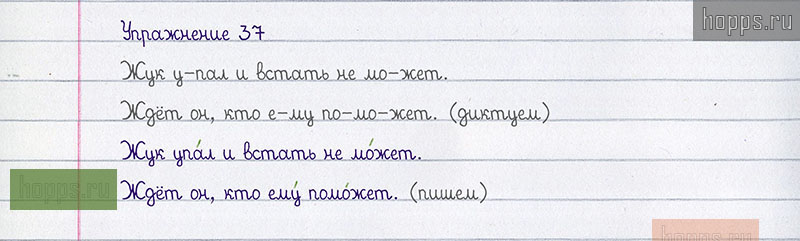 hopps.ru
Упражнение 37
Жук у-пал и встать не мо-жет.
Ждёт он, кто е-му по-мо-жет. (диктуем)
Жук упа́л и встать не мо́жет.
hopps.ru
Ждёт он, кто ему́ помо́жет. (пишем)
hopps.ru